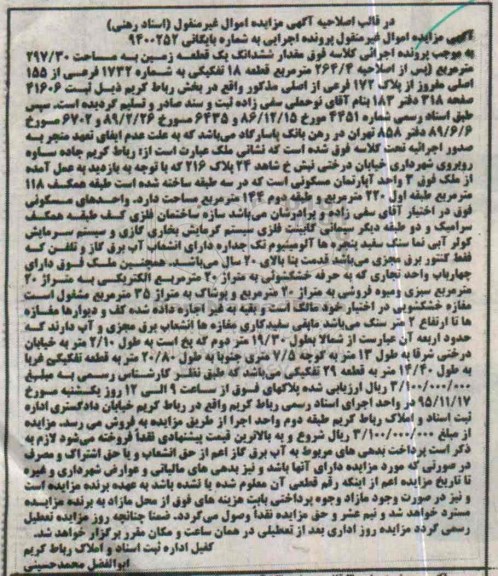 در قالب اصلاحیه آگهی مزایده اموال غیرمنقول (اسناد رهنی)
آگهی مزایده اموال غیرمنقول پرونده اجرایی به شماره بایگانی ۹۴۰۰۲۵۲
به موجب پرونده اجرائی کلاسه فوق مقدار ششدانگ یک قطعه زمین به مساحت ۲۹۷/۳۰
مترمربع (پس از اصلاحیه ۲۶۴/۴ مترمربع قطعه ۱۸ تفکیکی به شماره ۱۷۳۲ فرعی از ۱۵۵
اصلی مفروز از پلاک ۱۷۲ فرعی از اصلی مذکور واقع در بخش رباط کریم ذیل ثبت ۴۱۶۰۶
صفحه ۳۱۸ دفتر ۱۸۳ بنام آقای نوحعلی سفی زاده ثبت و سند صادر و تسلیم گردیده است. سپس
طبق اسناد رسمی شماره ۴۴۵۱ مورخ ۸۶/۱۲/۱۵ و ۶۴۳۵ مورخ ۸۹/۲/۲۶ و ۶۷۰۲ مورخ
۸۹/۶/۶ دفتر ۸۵۸ تهران در رهن بانک پاسارگاد می‌باشد که به علت عدم ایفای تعهد منجر به
صدور اجرائیه تحت کلاسه فوق شده است که نشانی ملک عبارت است از: رباط کریم جاده ساوه
روبروی شهرداری خیابان درختی نبش خ شاهد ۲۴ پلاک ۲۱۶ که با توجه به بازدید به عمل آمده
از ملک فوق ۳ واحد آپارتمان مسکونی است که در سه طبقه ساخته شده است طبقه همکف ۱۱۸
مترمربع طبقه اول ۲۲۰ مترمربع و طبقه دوم ۱۴۴ مترمربع مساحت دارد. واحدهای مسکونی
فوق در اختیار آقای سفی زاده و برادرشان می‌باشد سازه ساختمان فلزی کف طبقه همکف
سرامیک و دو طبقه دیگر سیمانی کابینت فلزی سیستم گرمایش بخاری گازی و سیستم سرمایش
کولر آبی نما سنگ سفید پنجره ها آلومینیوم تک جداره دارای انشعاب آب برق گاز و تلفن که
فقط کنتور برق مجزی می‌باشد قدمت بنا بالای ۲۰ سال می‌باشد. همچنین ملک فوق دارای
چهارباب واحد تجاری که به حرفه خشکشوئی به متراژ ۲۰ مترمربع الکتریکی به متراژ ۲۰
مترمربع سبزی و میوه فروشی به متراژ ۲۰ مترمربع و پوشاک به متراژ ۳۵ مترمربع مشغول است
مغازه خشکشویی در اختیار خود مالک است و بقیه به غیر اجاره داده شده کف و دیوارها مغازه
ها تا ارتفاع ۲ متر سنگ می‌باشد مابقی سفیدکاری مغازه ها انشعاب برق مجزی و آب دارند که
حدود اربعه آن عبارتست از شمالا بطول ۱۹/۳۰ متر دوم که پخ است به طول ۲/۱۰ متر به خیابان
درختی شرقا به طول ۱۳ متر به کوچه ۷/۵ متری جنوبا به طول ۲۰/۸۰ متر به قطعه تفکیکی غربا
به طول ۱۴/۴۰ متر به قطعه ۲۹ تفکیکی می‌باشد که طبق نظر کارشناس رسمی به مبلغ
۳/۱۰۰/۰۰۰/۰۰۰ ریال ارزیابی شده پلاکهای فوق از ساعت ۹ الی ۱۲ روز یکشنبه مورخ
۹۵/۱۱/۱۷ در واحد اجرای اسناد رسمی رباط کریم واقع در رباط کریم خیابان دادگستری اداره
ثبت اسناد و املاک رباط کریم طبقه دوم واحد اجرا از طریق مزایده به فروش می رسد. مزایده
از مبلغ ۳/۱۰۰/۰۰۰/۰۰۰ ریال شروع و به بالاترین قیمت پیشنهادی نقدا فروخته می‌شود لازم به
ذکر است پرداخت بدهی های مربوط به آب برق گاز اعم از حق انشعاب و یا حق اشتراک و مصرف
در صورتی که مورد مزایده دارای آنها باشد و نیز بدهی های مالیاتی و عوارض شهرداری و غیره
تا تاریخ مزایده اعم از اینکه رقم قطعی آن معلوم شده یا نشده باشد به عهده برنده مزایده است
و نیز در صورت وجود مازاد وجوه پرداختی بابت هزینه های فوق از محل مازاد به برنده مزایده
مسترد خواهد شد و نیم عشر و حق مزایده نقدا وصول می‌گردد. ضمنا چنانچه روز مزایده تعطیل
رسمی گردد مزایده روز اداری بعد از تعطیلی در همان ساعت و مکان مقرر برگزار خواهد شد.
کفیل اداره ثبت اسناد و املاک رباط کریم
ابوالفضل محمدحسینی